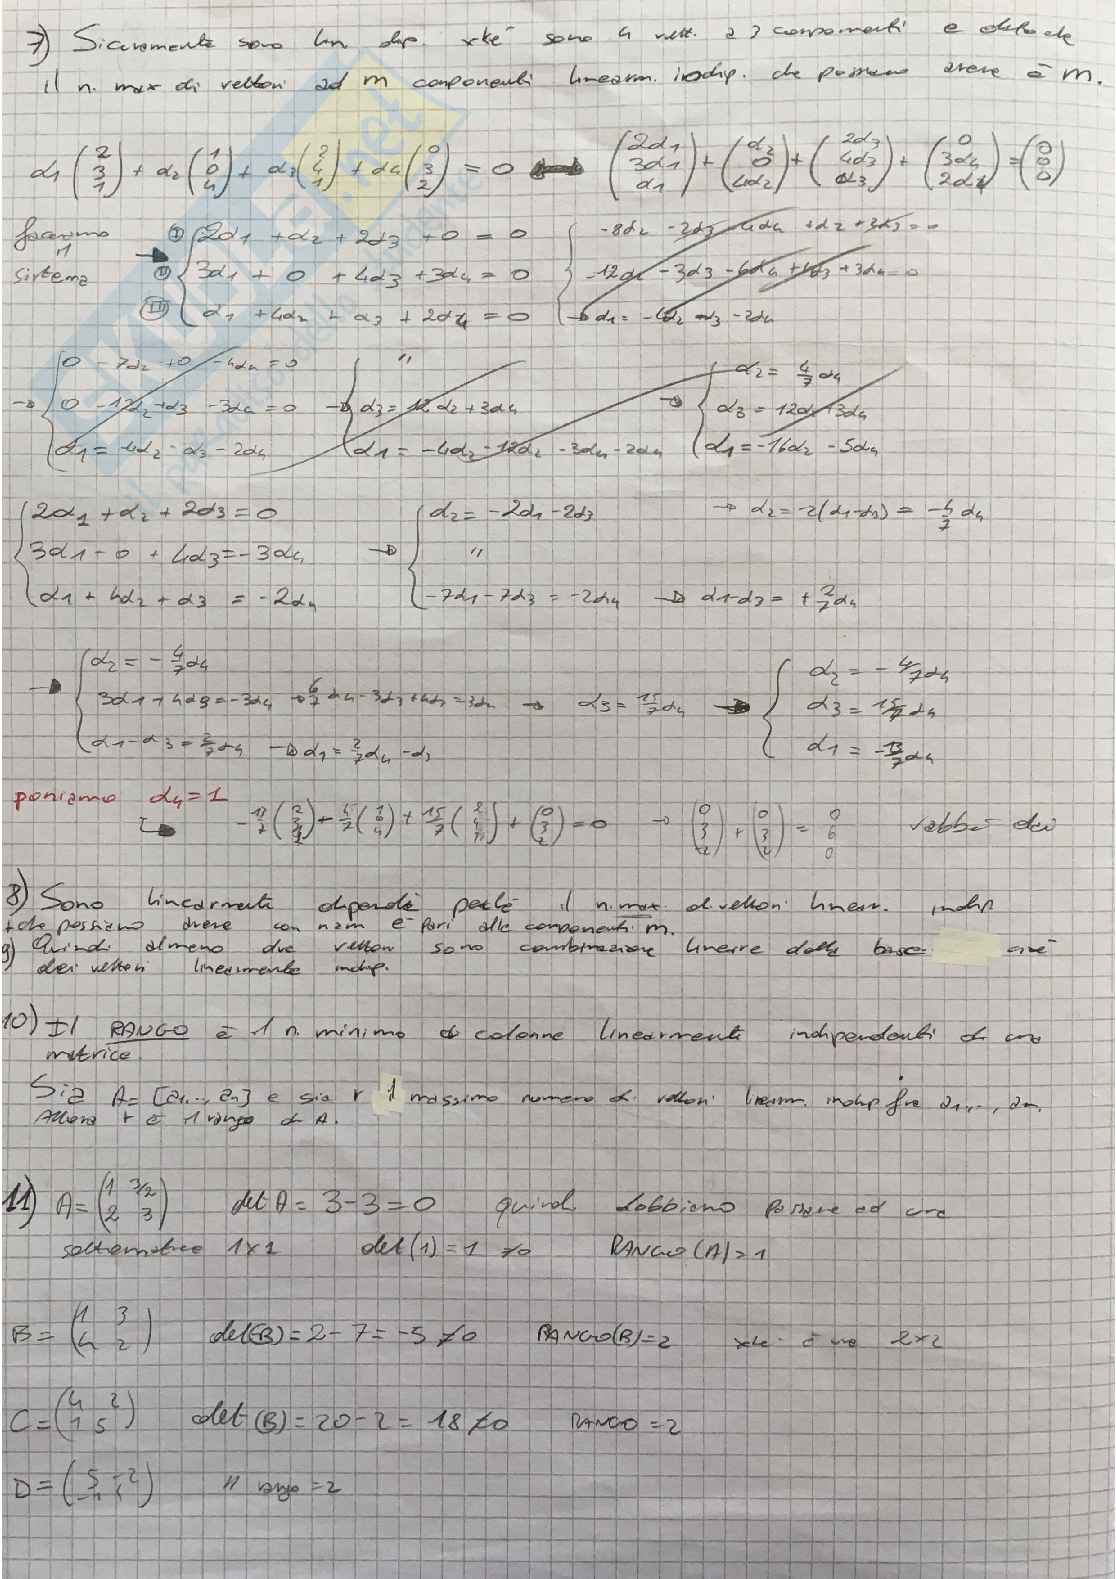 7) Sicuramente sono lin. dip. xké sono 4 vett. a 3 componenti e dato che
il n. max di vettori ad m componenti linearm. indip. che possiamo avere è m.
α1 (2 3 1) + α2 (1 0 4) + α3 (2 4 1) + α4 (0 3 2) = 0 (2α1 3α1 α1) + (α2 0 4α2) + (2α3 4α3 α3) + (0 3α4 2α4) = (0 0 0)
facciamo 1 sistema
I 2α1 + α2 + 2α3 + 0 = 0 -8α2 - 2α3 - 4α4 + α2 + 2α3 = 0
II 3α1 + 0 + 4α3 + 3α4 = 0 -12α2 - 3α3 - 6α4 + 4α3 + 3α4 = 0
III α1 + 4α2 + α3 + 2α4 = 0 → α1 = -4α2 - α3 - 2α4
0 - 7α2 + 0 - 4α4 = 0 " α2 = 4/7 α4
→ 0 - 12α2 + α3 - 3α4 = 0 → α3 = 12α2 + 3α4 → α3 = 12α2 + 3α4
α1 = -4α2 - α3 - 2α4 α1 = -4α2 - 12α2 - 3α4 - 2α4 α1 = -16α2 - 5α4
2α1 + α2 + 2α3 = 0 α2 = -2α1 - 2α3 → α2 = -2(α1-α3) = -4/7 α4
3α1 - 0 + 4α3 = -3α4 → "
α1 + 4α2 + α3 = -2α4 -7α1 - 7α3 = -2α4 → α1-α3 = +2/7 α4
α2 = -4/7 α4 α2 = -4/7 α4
→ 3α1 + 4α3 = -3α4 → 6/7 α4 - 3α3 + 4α3 = 3α4 → α3 = 15/7 α4 → α3 = 15/7 α4
α1 - α3 = 2/7 α4 → α1 = 2/7 α4 - α3 α1 = -13/7 α4
poniamo α4 = 1
-13/7 (2 3 1) + 4/7 (1 0 4) + 15/7 (2 4 1) + (0 3 2) = 0 → (0 3 2) + (0 3 2) = 0 6 0 vabbè dai
8) Sono linearmente dipende perché il n. max. di vettori linear. indip
che possiamo avere con nxm è pari alle componenti m.
9) Quindi almeno due vettori sono combinazione lineare della base cioè
dei vettori linearmente indip.
10) Il RANGO è 1 n. minimo di colonne linearmente indipendenti di una
matrice.
Sia A = [a1..., an] e sia r il massimo numero di vettori linearm. indip fra a1,..., an.
Allora r è il rango di A.
11) A = (1 3/2 2 3) det A = 3 - 3 = 0 quindi dobbiamo passare ad una
sottomatrice 1×1 det(1) = 1 ≠0 RANGO(A) = 1
B = (1 3 4 2) det(B) = 2 - 7 = -5 ≠0 RANGO(B) = 2 xké è una 2×2
C = (4 2 1 5) det (B) = 20 - 2 = 18 ≠0 RANGO = 2
D = " rango = 2